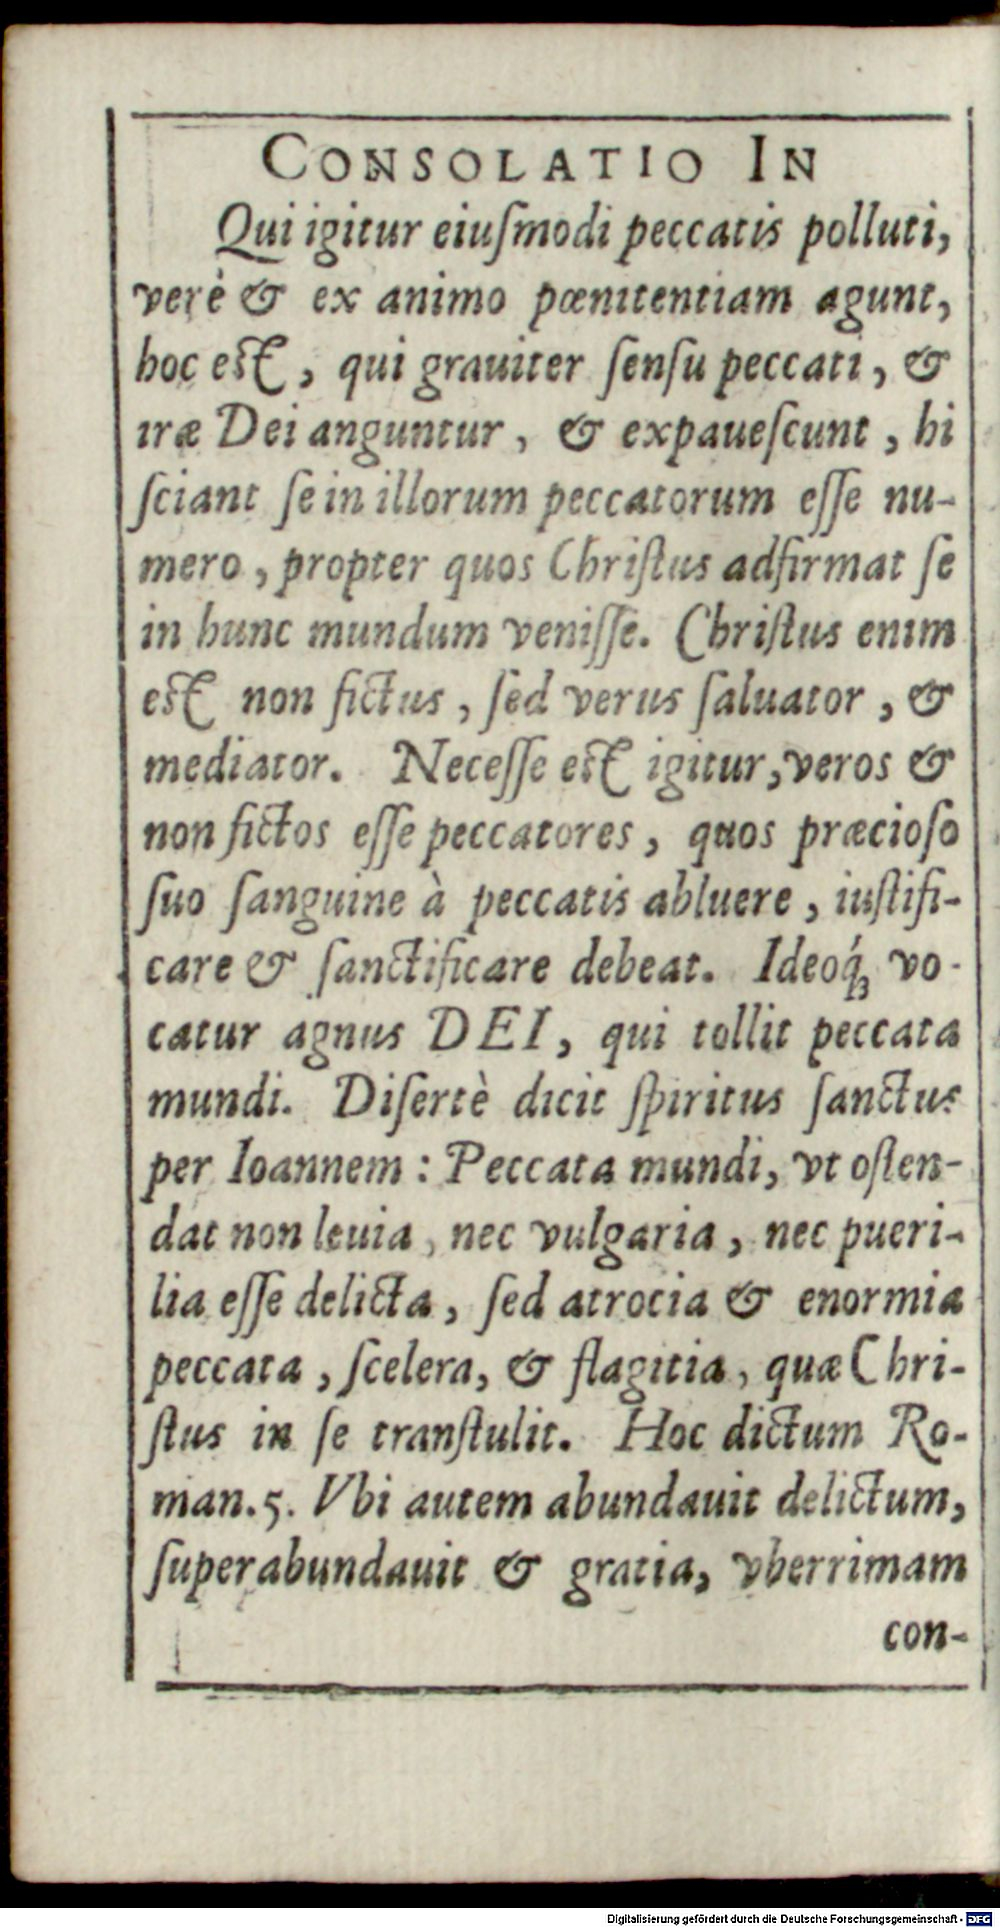 CONSOLATIO IN
Qui igitur eiuſmodi peccatis polluti,
verè & ex animo pœnitentiam agunt,
hoc eſt, qui grauiter ſenſu peccati, &
iræ Dei anguntur, & expaueſcunt, hi
ſciant ſe in illorum peccatorum eſſe nu-
mero, propter quos Chriſtus adfirmat ſe
in hunc mundum veniſſe. Chriſtus enim
eſt non fictus, ſed verus ſaluator, &
mediator. Neceſſe eſt igitur, veros &
non fictos eſſe peccatores, quos præcioſo
ſuo ſanguine à peccatis abluere, iuſtifi-
care & ſanctificare debeat. Ideoq́ꝫ vo-
catur agnus DEI, qui tollit peccata
mundi. Diſertè dicit ſpiritus ſanctus
per Ioannem: Peccata mundi, vt oſten-
dat non leuia, nec vulgaria, nec pueri-
lia eſſe delicta, ſed atrocia & enormia
peccata, ſcelera, & flagitia, quæ Chri-
ſtus in ſe tranſtulit. Hoc dictum Ro-
man.5. Vbi autem abundauit delictum,
ſuperabundauit & gratia, vberrimam
con-
Digitalisierung gefördert durch die Deutsche Forschungsgemeinschaft - DFG